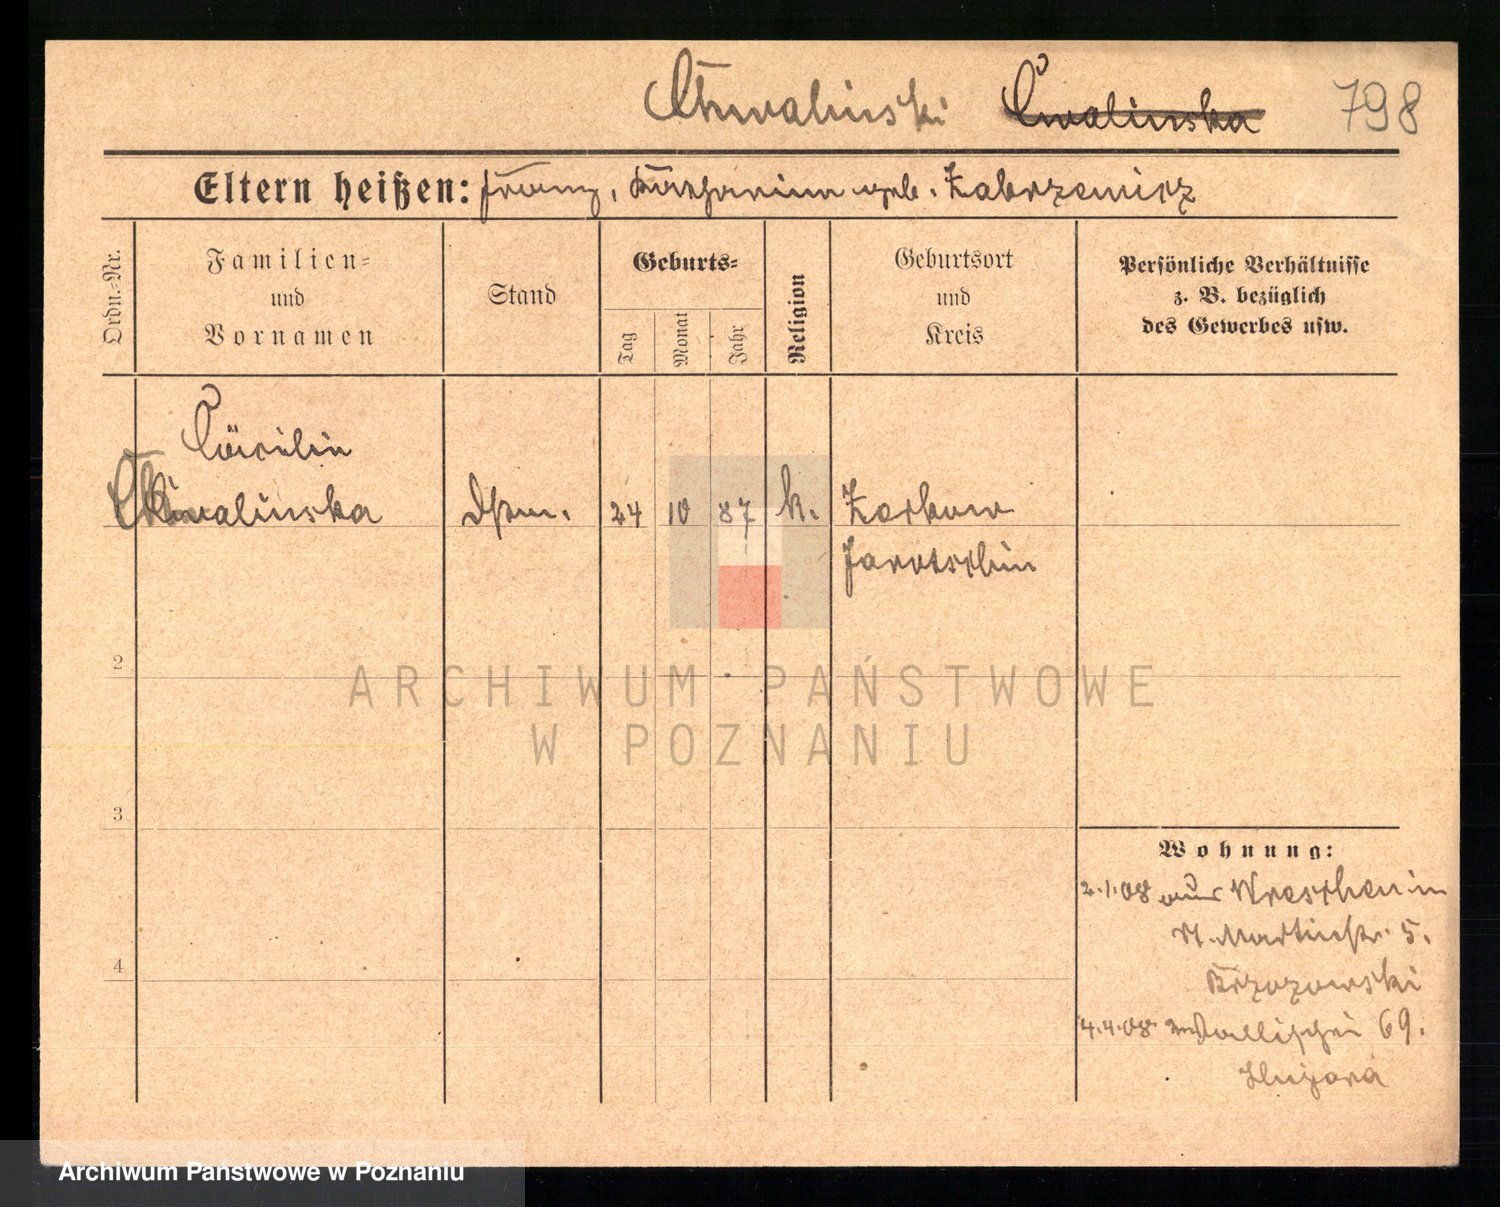 Chwalinski Cwalinska 798
Eltern heißen: Franz, Katharina geb. Zakrzewicz
Ordn.-Nr.
Familien-
und
Vornamen
Stand
Geburts-
Tag
Monat
Jahr
Religion
Geburtsort
und
Kreis
Persönliche Verhältnisse
z. B. bezüglich
des Gewerbes usw.
Cäcilie
Chwalinska 24 10 87 k. Zerkow
Jarotschin
2
3
4
ARCHIWUM PAŃSTWOWE
W POZNANIU
Wohnung:
2.1.08 aus Wreschen in
St. Martinstr. 5.
Brzozowski
4.4.08 Wallischei 69.
Archiwum Państwowe w Poznaniu